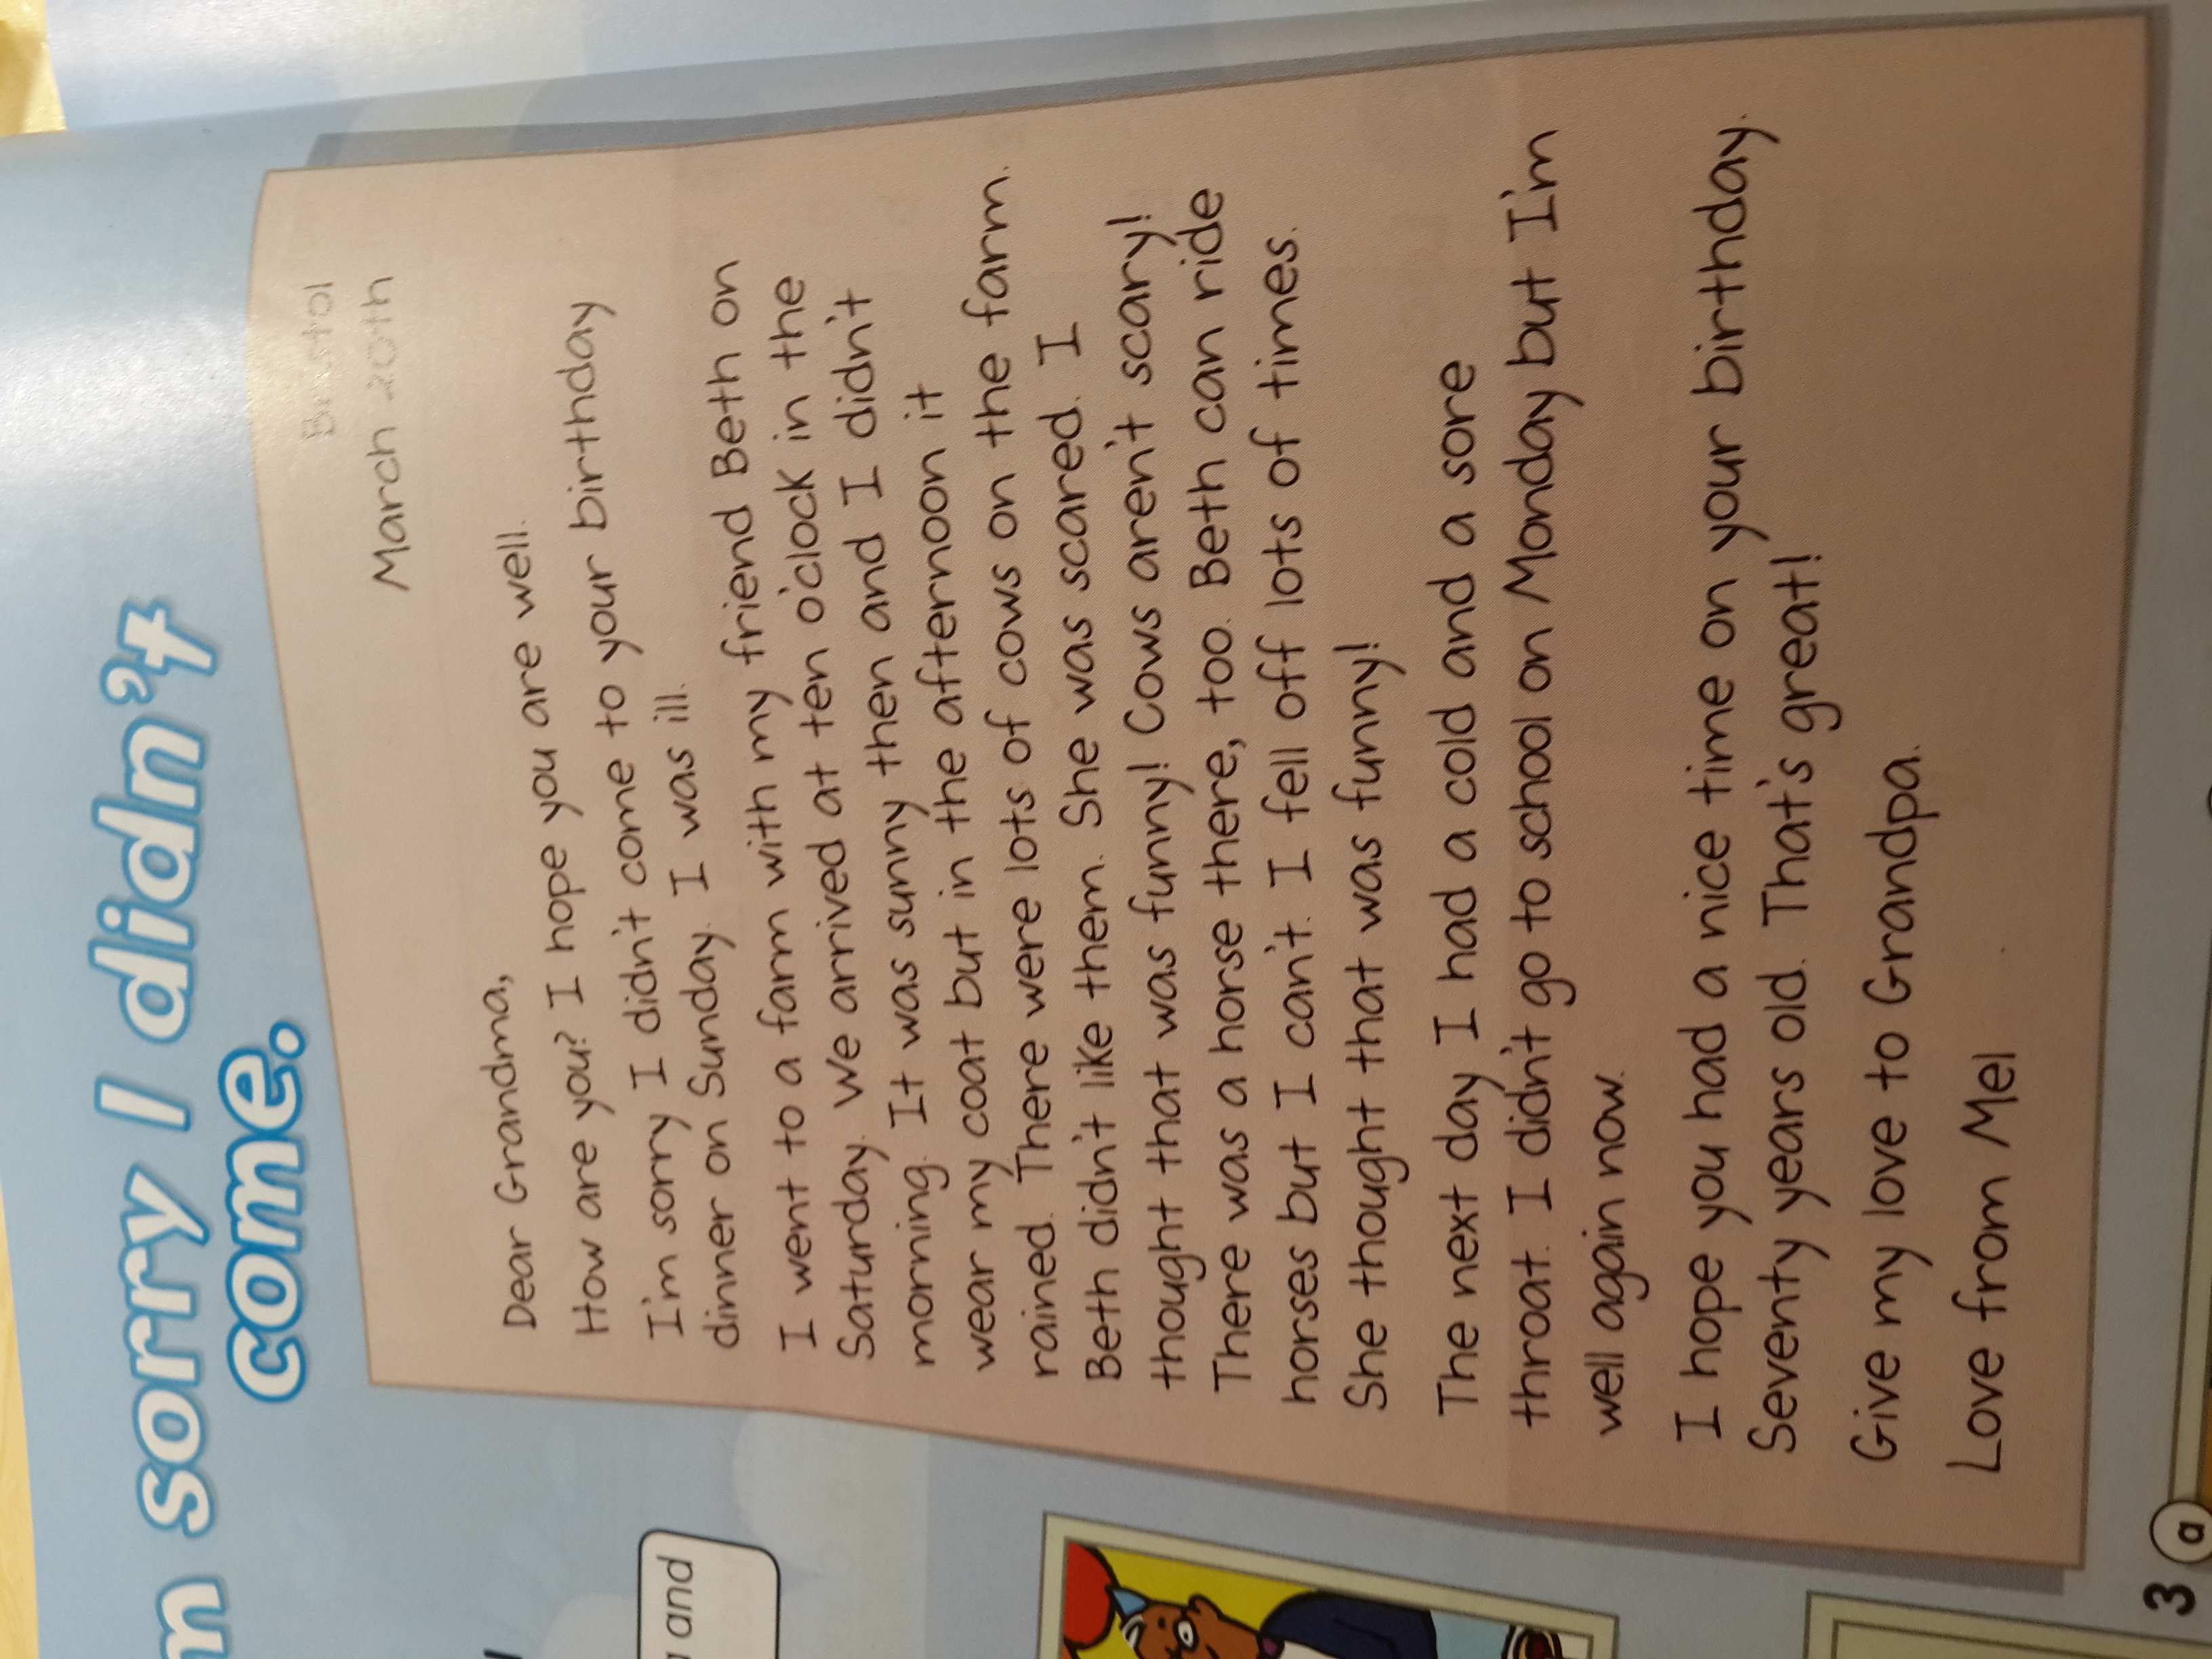 m sorry I didn't
come.
Bristol
March 20th
Dear Grandma,
How are you? I hope you are well.
I'm sorry I didn't come to your birthday
dinner on Sunday. I was ill.
I went to a farm with my friend Beth on
Saturday. We arrived at ten o'clock in the
morning. It was sunny then and I didn't
wear my coat but in the afternoon it
rained. There were lots of cows on the farm.
Beth didn't like them. She was scared. I
thought that was funny! Cows aren't scary!
There was a horse there, too. Beth can ride
horses but I can't. I fell off lots of times.
She thought that was funny!
The next day I had a cold and a sore
throat. I didn't go to school on Monday but I'm
well again now.
I hope you had a nice time on your birthday.
Seventy years old. That's great!
Give my love to Grandpa.
Love from Mel
and
3 a